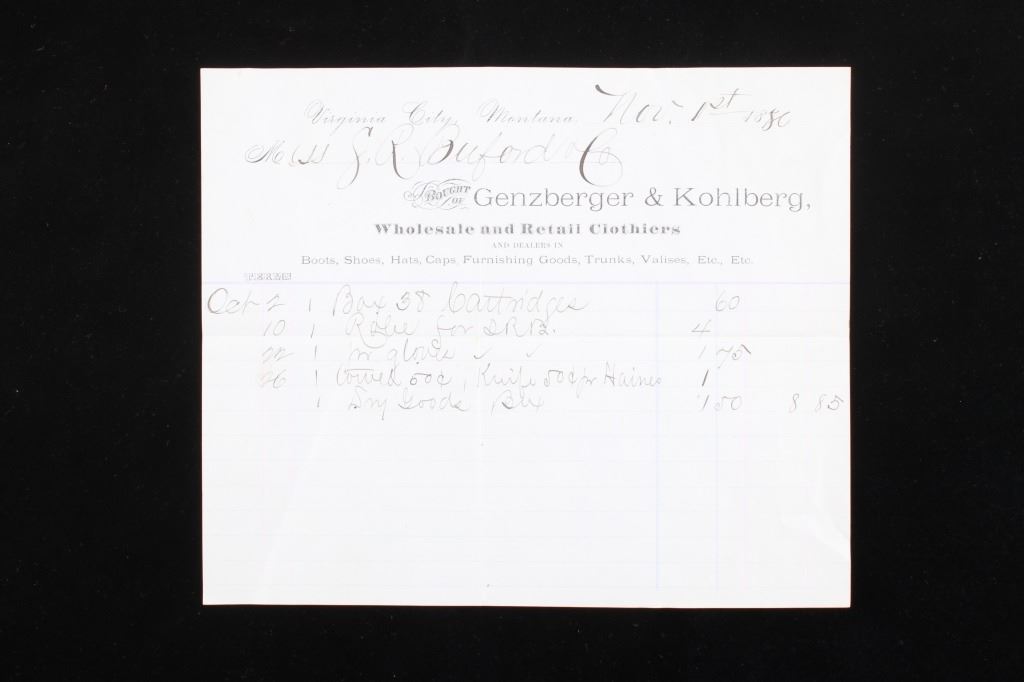 Virginia City, Montana, Nov. 1st 1880
Mess J. R. Buford & Co
Bought of Genzberger & Kohlberg,
Wholesale and Retail Clothiers
AND DEALERS IN
Boots, Shoes, Hats, Caps, Furnishing Goods, Trunks, Valises, Etc., Etc.
TERMS
Oct 2 1 Box 38 Cartridges 60
10 1 Robe for S.R.B. 4
22 1 pr gloves " " 1 75
26 1 towel 50¢, 1 Knife 50¢ pr Haines 1
1 Dry Goods Box 1 50 8 85